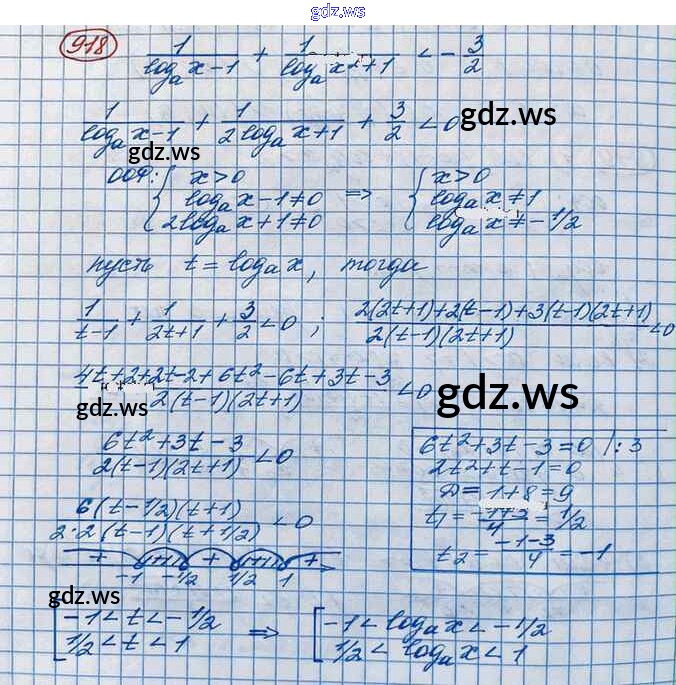 gdz.ws
918 1/(logₐ x-1) + 1/(logₐ x²+1) < - 3/2
1/(logₐ x-1) + 1/(2logₐ x+1) + 3/2 < 0
gdz.ws
gdz.ws
ООФ: { x>0 ; logₐ x-1≠0 ; 2logₐ x+1≠0 => { x>0 ; logₐ x≠1 ; logₐ x≠-1/2
пусть t = logₐ x, тогда
1/(t-1) + 1/(2t+1) + 3/2 < 0 ; (2(2t+1)+2(t-1)+3(t-1)(2t+1))/(2(t-1)(2t+1)) < 0
(4t+2+2t-2+6t²-6t+3t-3)/(2(t-1)(2t+1)) < 0
gdz.ws
gdz.ws
(6t²+3t-3)/(2(t-1)(2t+1)) < 0
6(t-1/2)(t+1)/(2·2(t-1)(t+1/2)) < 0
+ + +
-1 -1/2 1/2 1
6t²+3t-3=0 /:3
2t²+t-1=0
D=1+8=9
t₁ = (-1+3)/4 = 1/2
t₂ = (-1-3)/4 = -1
gdz.ws
gdz.ws
[ -1<t<-1/2 ; 1/2<t<1 => [ -1<logₐ x<-1/2 ; 1/2<logₐ x<1